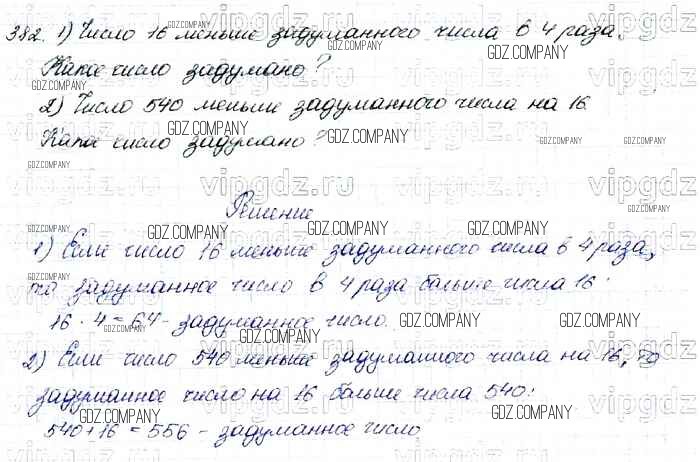 382. 1) Число 16 меньше задуманного числа в 4 раза.
Какое число задумано?
2) Число 540 меньше задуманного числа на 16
Какое число задумано?
Решение
1) Если число 16 меньше задуманного числа в 4 раза,
то задуманное число в 4 раза больше числа 16:
16 · 4 = 64 - задуманное число.
2) Если число 540 меньше задуманного числа на 16, то
задуманное число на 16 больше числа 540:
540 + 16 = 556 - задуманное число
vipgdz.ru
GDZ.COMPANY